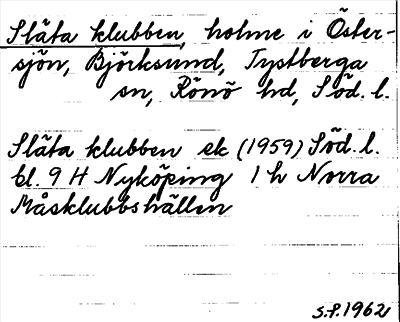 Släta klubben, holme i Öster-
sjön, Björksund, Tystberga
sn, Rönö hd, Söd. l.
Släta klubben ek (1959) Söd. l.
bl. 9 H Nyköping 1 h Norra
Måsklubbshällen
S.P. 1962